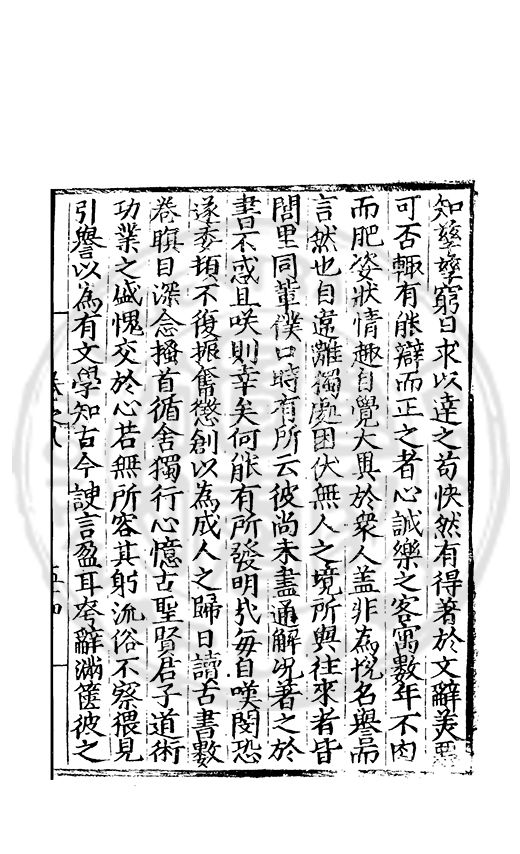 知孳孳窮日求以達之苟怏然有得著於文辭美惡
可否輙有能辯而正之者心誠樂之客寓數年不肉
而肥姿狀情趣自覺大異於衆人盖非為悅名譽而
言然也自遠離獨處困伏無人之境所與往來者皆
閭里同輩僕口時有所云彼尚未盡通解况著之於
書不惑且咲則幸矣何能有所發明㢤每自嘆閔恐
遂委頓不復振奮懲創以為成人之歸日讀古書數
卷瞑目深念搔首循舍獨行心憶古聖賢君子道術
功業之盛愧交於心若無所容其躬流俗不察猥見
引譽以為有文學知古今諛言盈耳夸辭滿篋彼之
卷之八
五四